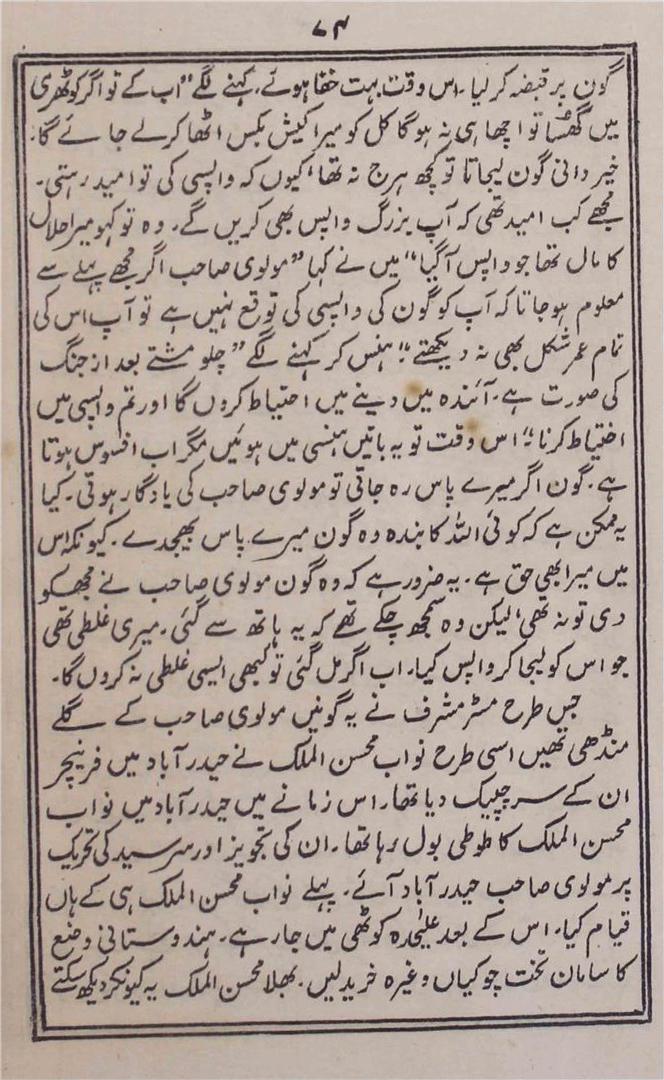 ۷۴
گون پر قبضہ کر لیا۔ اس وقت بہت خفا ہوئے، کہنے لگے "اب کے تو اگر کوٹھری
میں گھسا تو اچھا ہی نہ ہوگا کل کو میرا کیش بکس اٹھا کر لے جائے گا۔
خیر دانی گون لیجاتا تو کچھ ہرج نہ تھا، کیوں کہ واپسی کی تو امید رہتی۔
مجھے کب امید تھی کہ آپ بزرگ واپس بھی کریں گے۔ وہ تو کہو میرا حلال
کا مال تھا جو واپس آگیا" میں نے کہا "مولوی صاحب اگر مجھے پہلے سے
معلوم ہو جاتا کہ آپ کو گون کی واپسی کی توقع نہیں ہے تو آپ اس کی
تمام عمر شکل بھی نہ دیکھتے"۔ ہنس کر کہنے لگے "چلو مشتے بعد از جنگ
کی صورت ہے۔ آئندہ میں دینے میں احتیاط کروں گا اور تم واپسی میں
احتیاط کرنا"۔ اس وقت تو یہ باتیں ہنسی میں ہوئیں مگر اب افسوس ہوتا
ہے۔ گون اگر میرے پاس رہ جاتی تو مولوی صاحب کی یادگار ہوتی۔ کیا
یہ ممکن ہے کہ کوئی اللہ کا بندہ وہ گون میرے پاس بھیجدے۔ کیونکہ اس
میں میرا بھی حق ہے۔ یہ ضرور ہے کہ وہ گون مولوی صاحب نے مجھکو
دی تو نہ تھی، لیکن وہ سمجھ چکے تھے کہ یہ ہاتھ سے گئی۔ میری غلطی تھی
جو اس کو لیجا کر واپس کیا۔ اب اگر مل گئی تو کبھی ایسی غلطی نہ کروں گا۔
جس طرح مسٹر مشرف نے یہ گونیں مولوی صاحب کے گلے
منڈھی تھیں اسی طرح نواب محسن الملک نے حیدرآباد میں فرنیچر
ان کے سر چپیک دیا تھا۔ اس زمانے میں حیدرآباد میں نواب
محسن الملک کا طوطی بول رہا تھا۔ ان کی تجویز اور سرسید کی تحریک
پر مولوی صاحب حیدرآباد آئے۔ پہلے نواب محسن الملک ہی کے ہاں
قیام کیا۔ اس کے بعد علیٰحدہ کوٹھی میں جا رہے۔ ہندوستانی وضع
کا سامان تخت چوکیاں وغیرہ خرید لیں۔ بھلا محسن الملک یہ کیونکر دیکھ سکتے